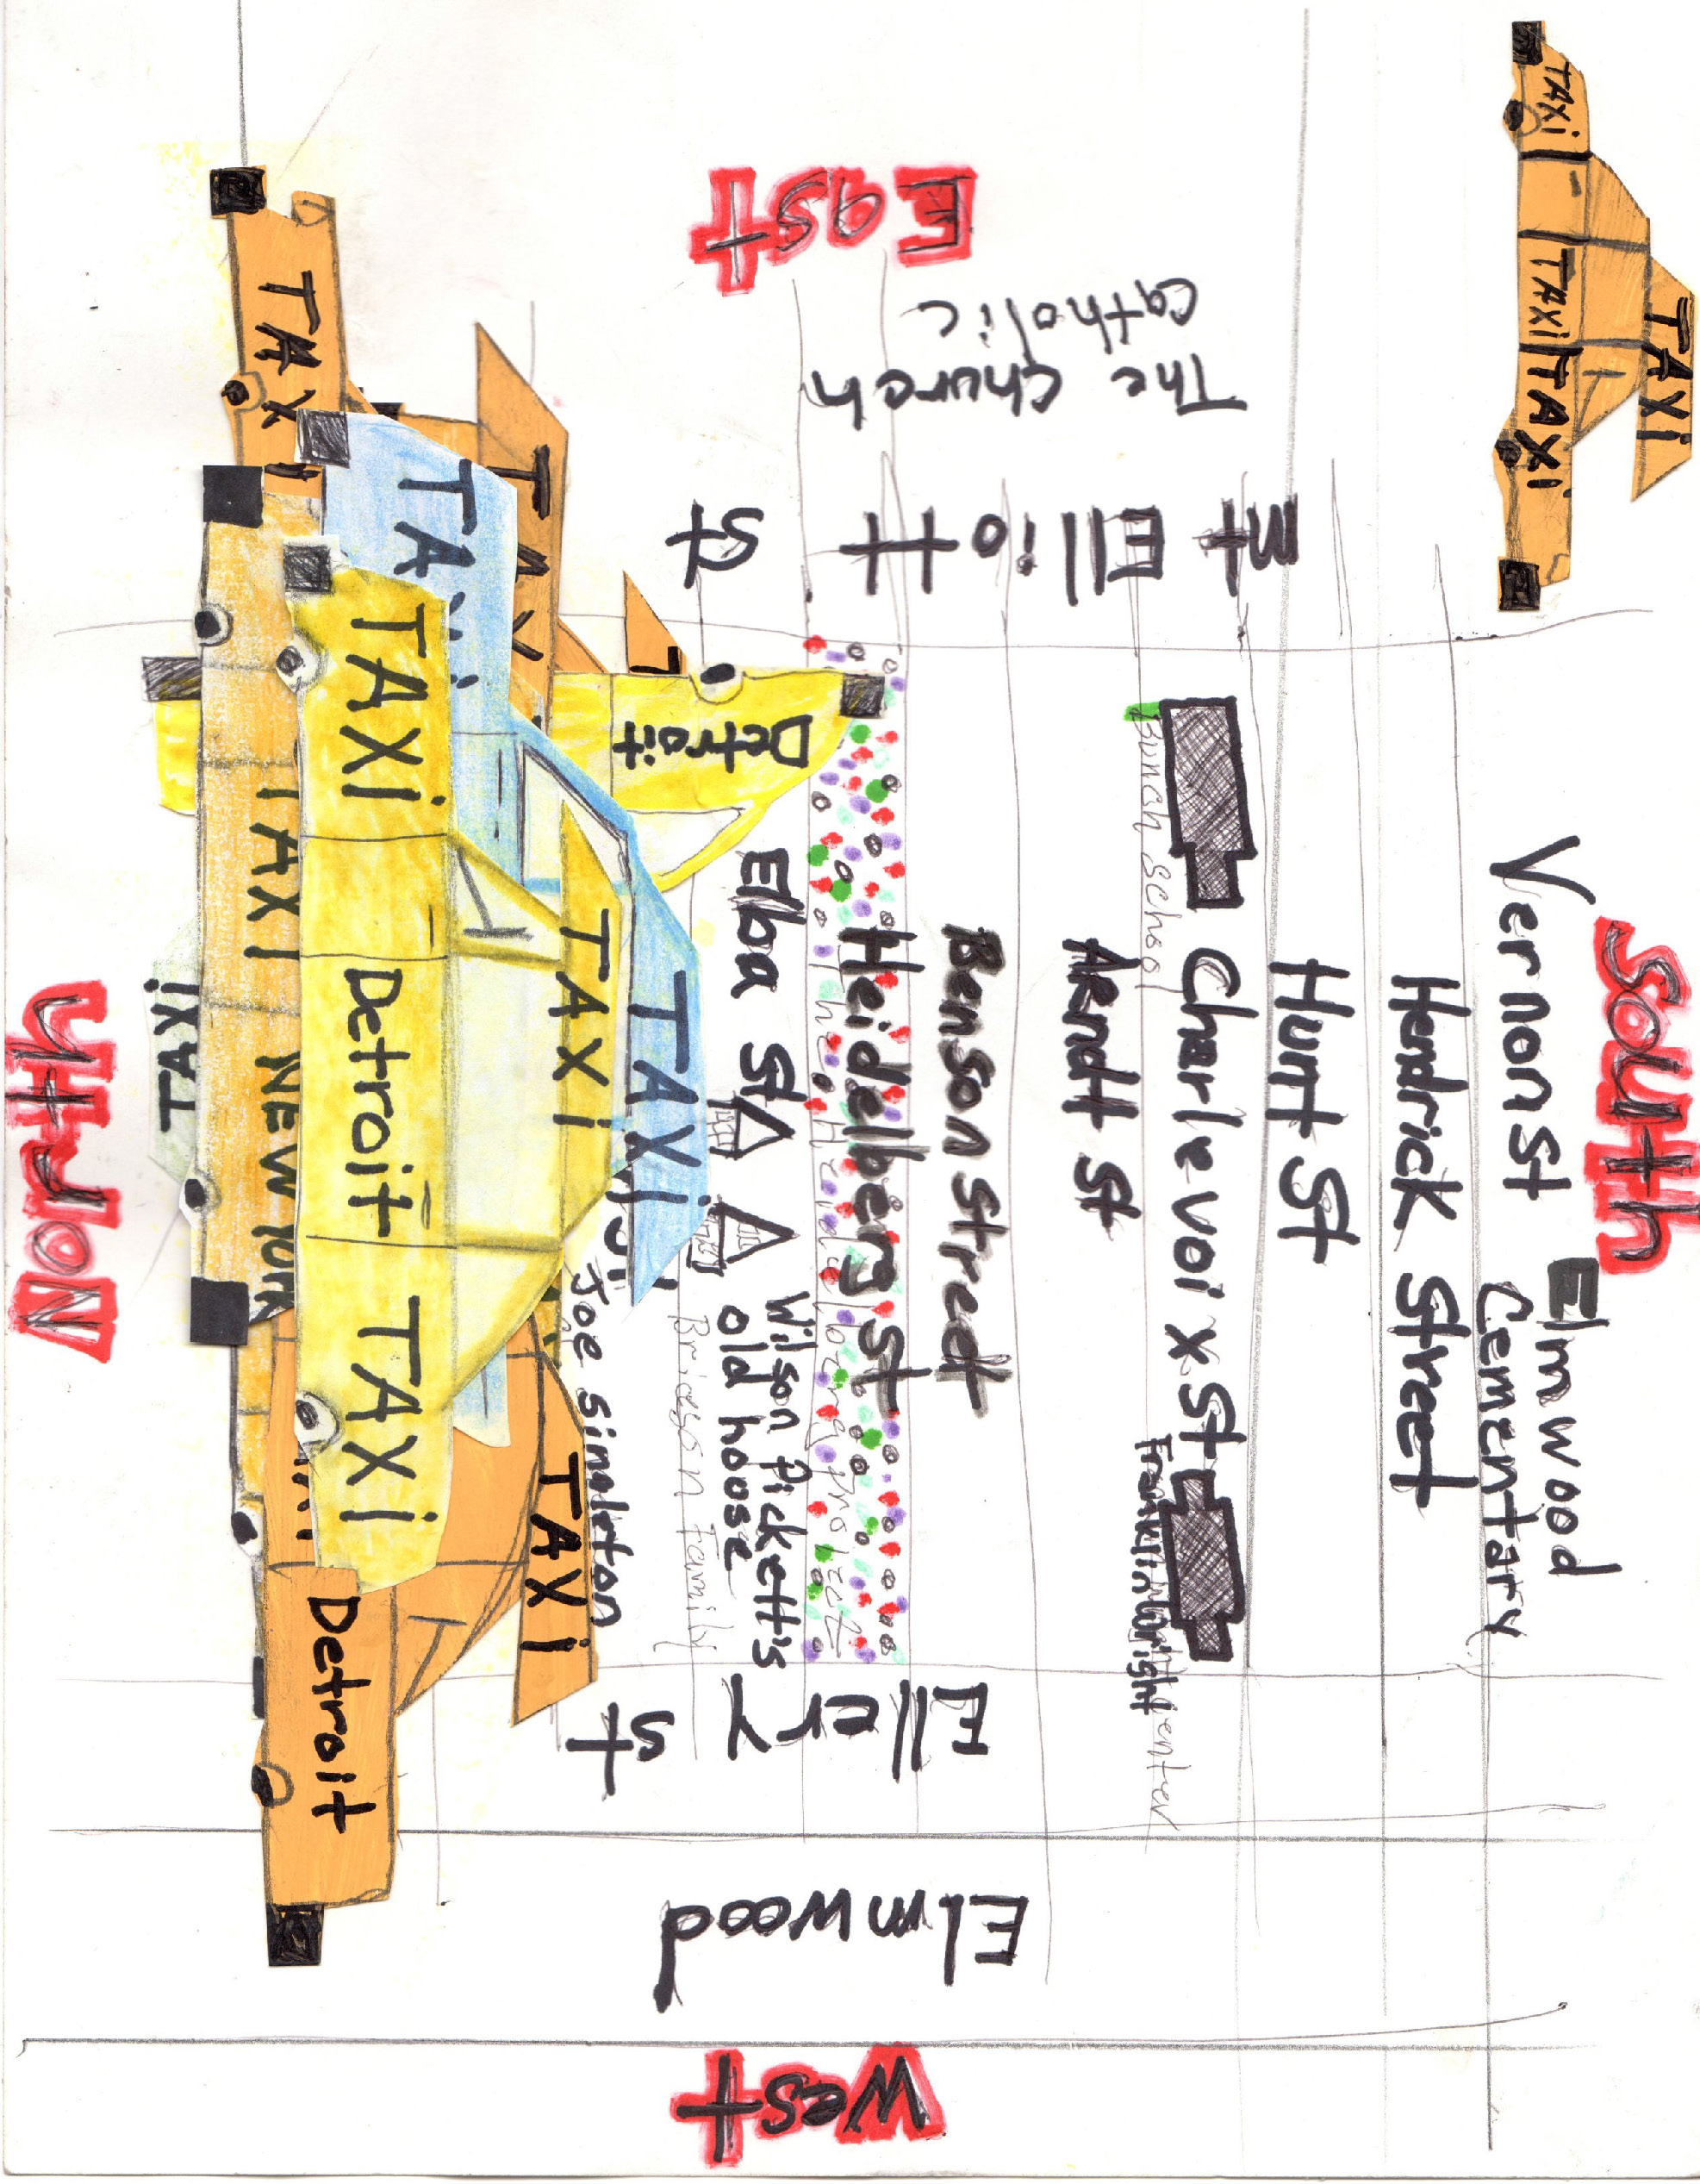 South
Elmwood
Cementary
Vernon St
Hendrick Street
Hunt St
Charle voi x St
Bunch school
Arndt St
Benson Street
Heidelberg St
The Heidelberg project
Elba St
Wilson Pickett's
old hoose
Family
Joe singleton
North
East
The church
catholic
Mt Elliott
St
Ellery
St
Elmwood
West
TAXi
TAXi
TAXi
TAXi
TAXi
TAXi
TAXi
TAXi
Detroit
TAXi
TAXi
TAXi
Detroit
TAXi
TAXi
TAXi
NEW YORK
TAXi
TAXi
Detroit